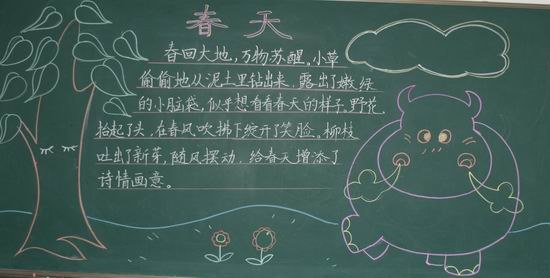 春天
春回大地，万物苏醒。小草
偷偷地从泥土里钻出来，露出了嫩绿
的小脑袋，似乎想看看春天的样子。野花
抬起了头，在春风吹拂下绽开了笑脸。柳枝
吐出了新芽，随风摆动，给春天增添了
诗情画意。